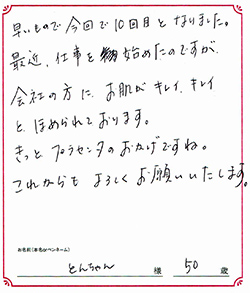 早いもので今回で10回目となりました。
最近、仕事を始めたのですが、
会社の方に、お肌がキレイ、キレイ
と、ほめられております。
きっとプラセンタのおかげですね。
これからもよろしくお願いいたします。
お名前(本名orペンネーム)
とんちゃん 様 50 歳